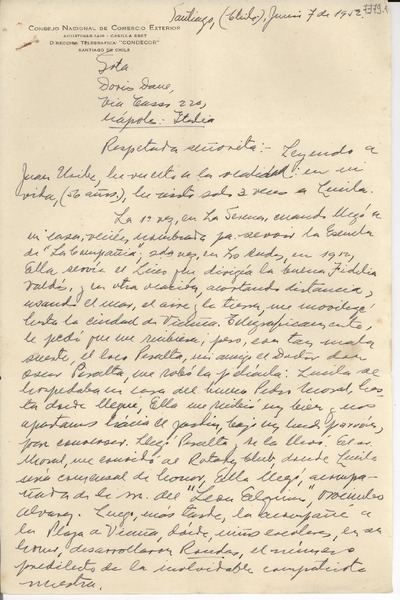 Santiago, (Chile), Junio 7 de 1952
CONSEJO NACIONAL DE COMERCIO EXTERIOR
CASILLA
DIRECCION TELEGRAFICA "CONDECOR"
SANTIAGO DE CHILE
Srta
Doris Dana,
Via Tasso 220,
Napoles: Italia
Respetada señorita:- Leyendo a
Juan Uribe, he vuelto a la realidad: en mi
vida, (56 años), he visto solo 3 veces a Lucila.
La 1ª vez, en La Serena, cuando llegó a
mi casa, recién nombrada pa. servir la Escuela
de "La Compañia: 2da vez, en Los Andes, en
Ella servía el Liceo que dirigía la buena Fidelia
Valdés, y en otra ocasión, acortando distancia,
usando el mar, el aire y la tierra, me movilicé
hasta la ciudad de Vicuña. Telegraficamente,
le pedí que me recibiera; pero, con tan mala
suerte, el loco Peralta, mi amigo el Doctor don
Oscar Peralta, me robó la película: Lucila se
hospedaba en casa del bueno Pedro Moral, has-
ta donde llegué. Ella me recibió muy bien y nos
apartamos hacia el jardín, bajo un lindo parrón,
para conversar. Llegó Peralta y se la llevó. El sr.
Moral, me convidó al Rotary Club, donde Lucila
era comensal de honor. Ella llegó acompa-
ñada de la sra. del "Leon Elquino" Marcelino
Alvarez. Luego, más tarde, la acompañé a
la Plaza de Vicuña, donde, niños escolares, en su
honor, desarrollaron Rondas, el número
predilecto de la inolvidable compatriota
nuestra.